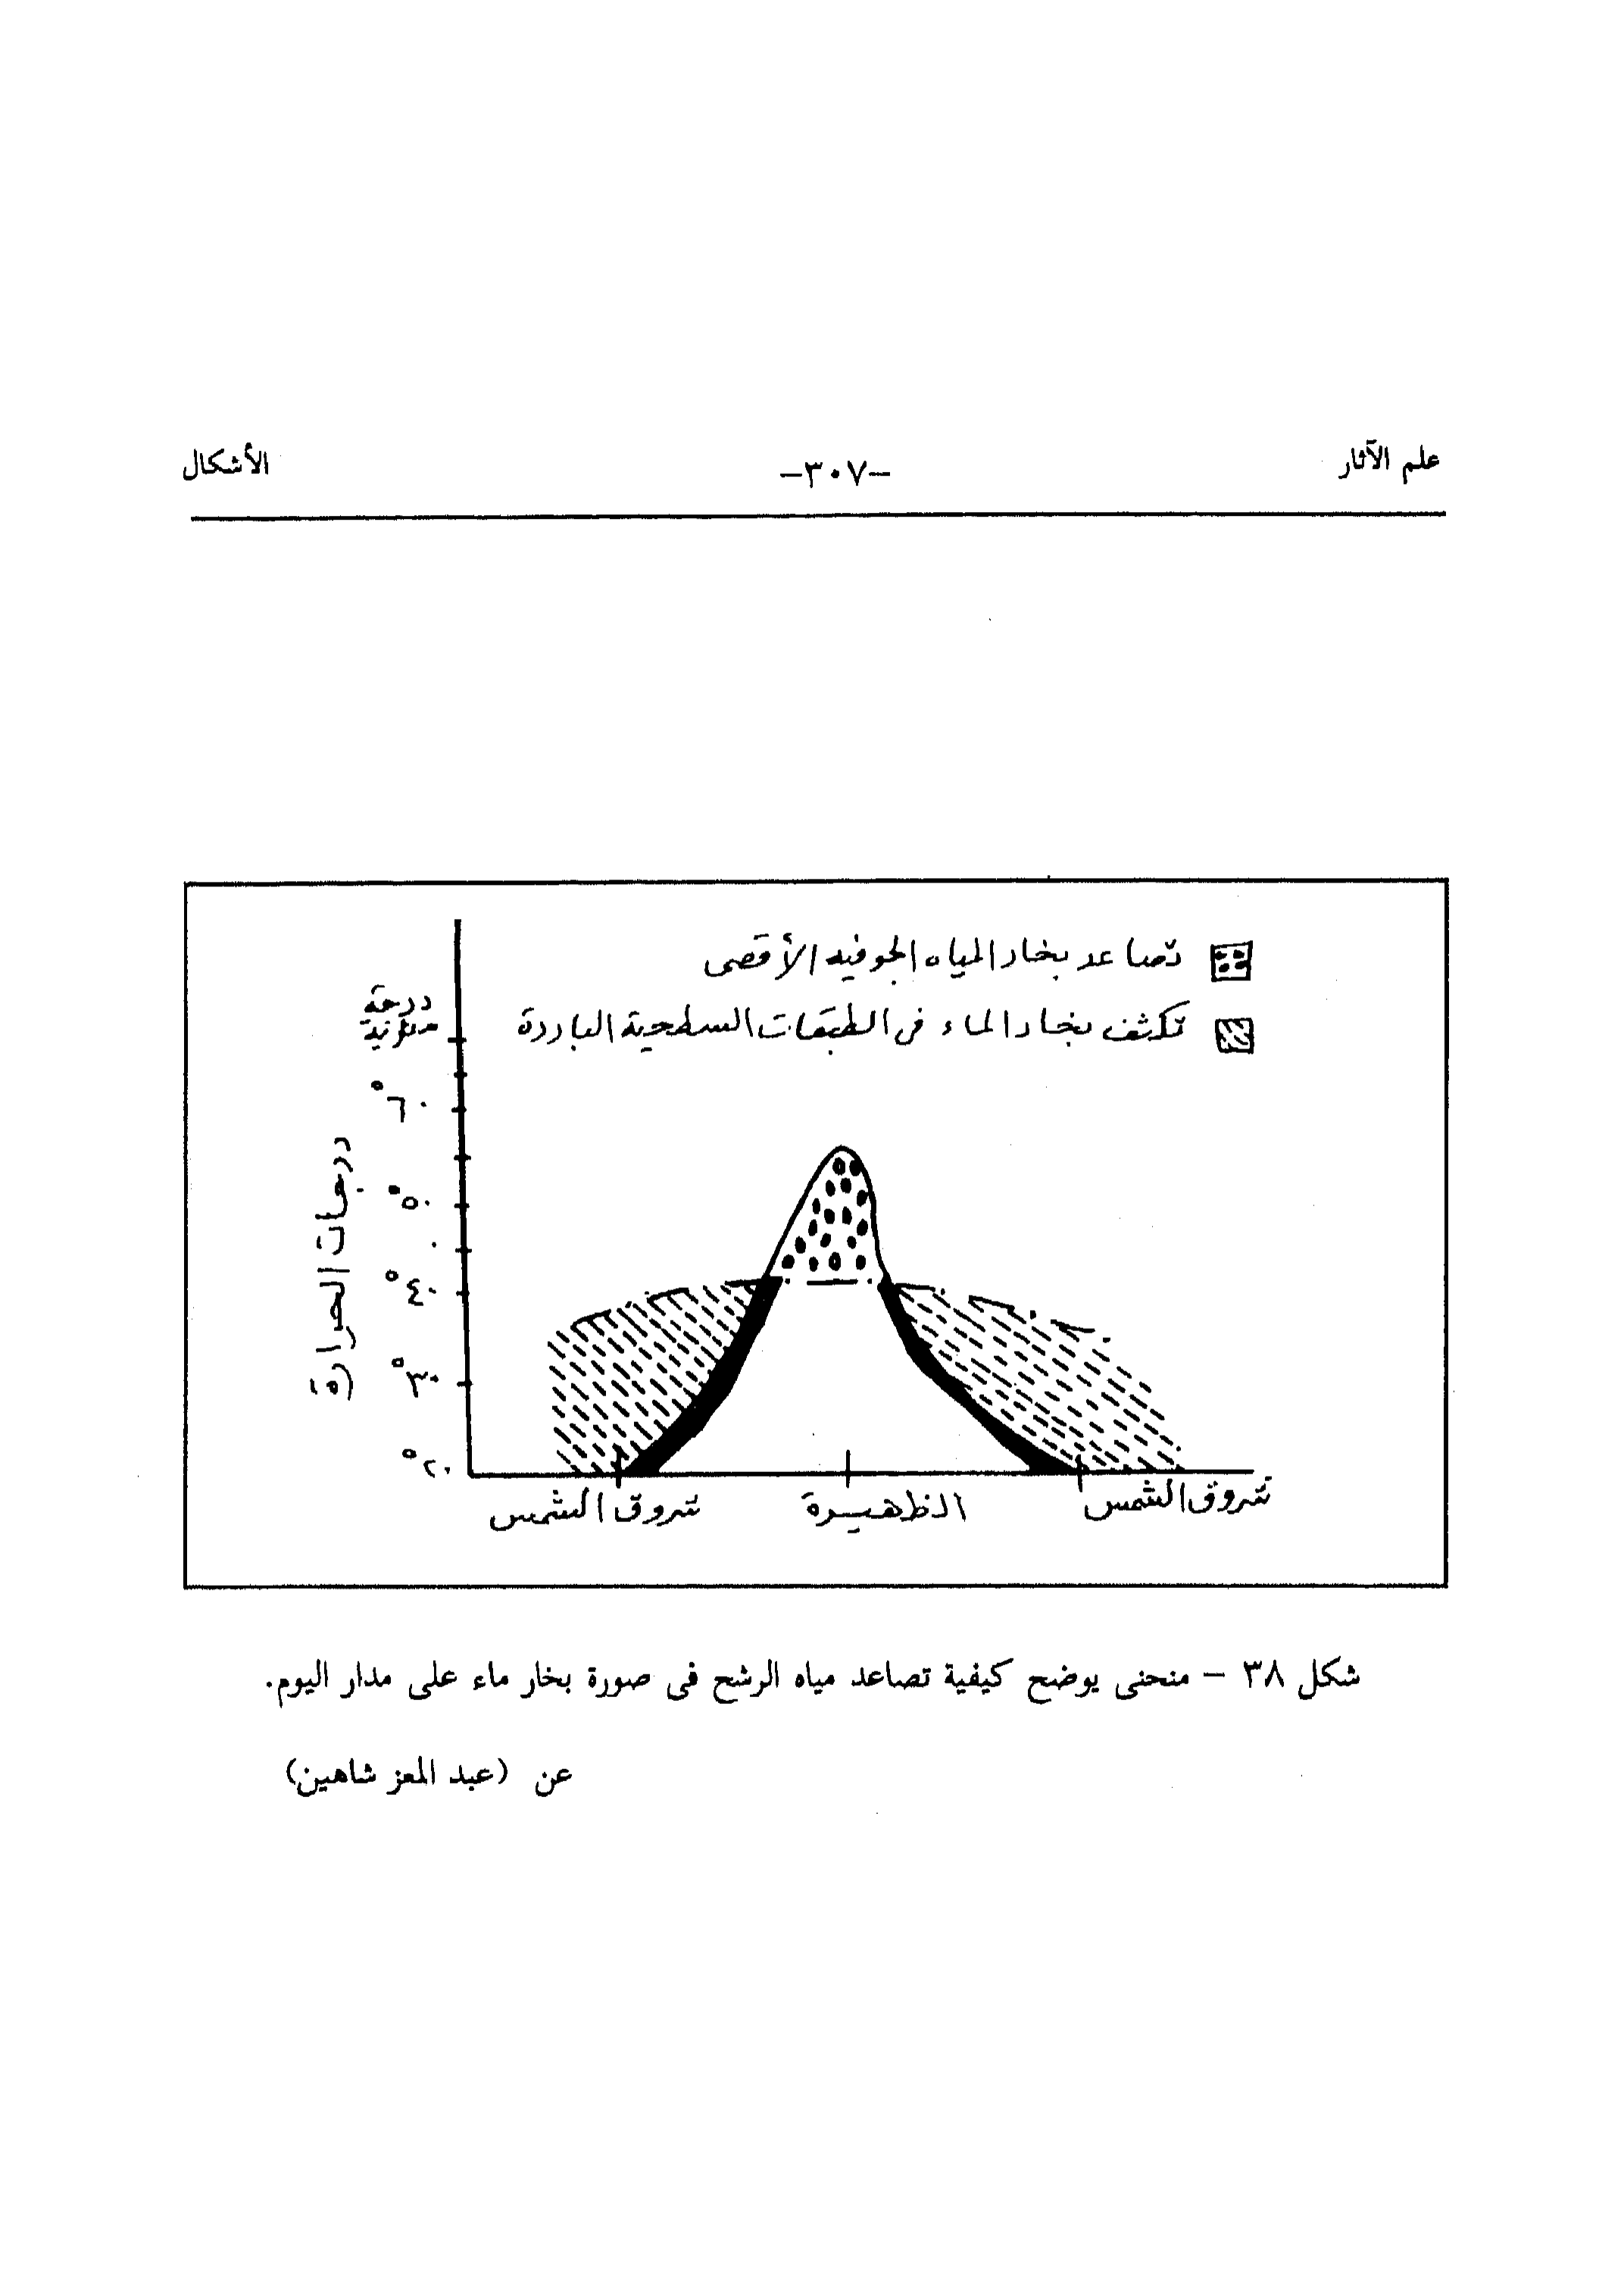 علم الآثار
-٣٠٧-
الأشكال
تصاعد بخار المياه الجوفيه الأقصى
تكثف بخار الماء فى الطبقات السطحية الباردة
درجة
مئوية
٦٠°
٥٠°
٤٠°
٣٠°
٢٠°
درجات الحرارة
شروق الشمس
الظهيرة
شروق الشمس
شكل ٣٨ – منحنى يوضح كيفية تصاعد مياه الرشح فى صورة بخار ماء على مدار اليوم.
عن (عبد المعز شاهين)